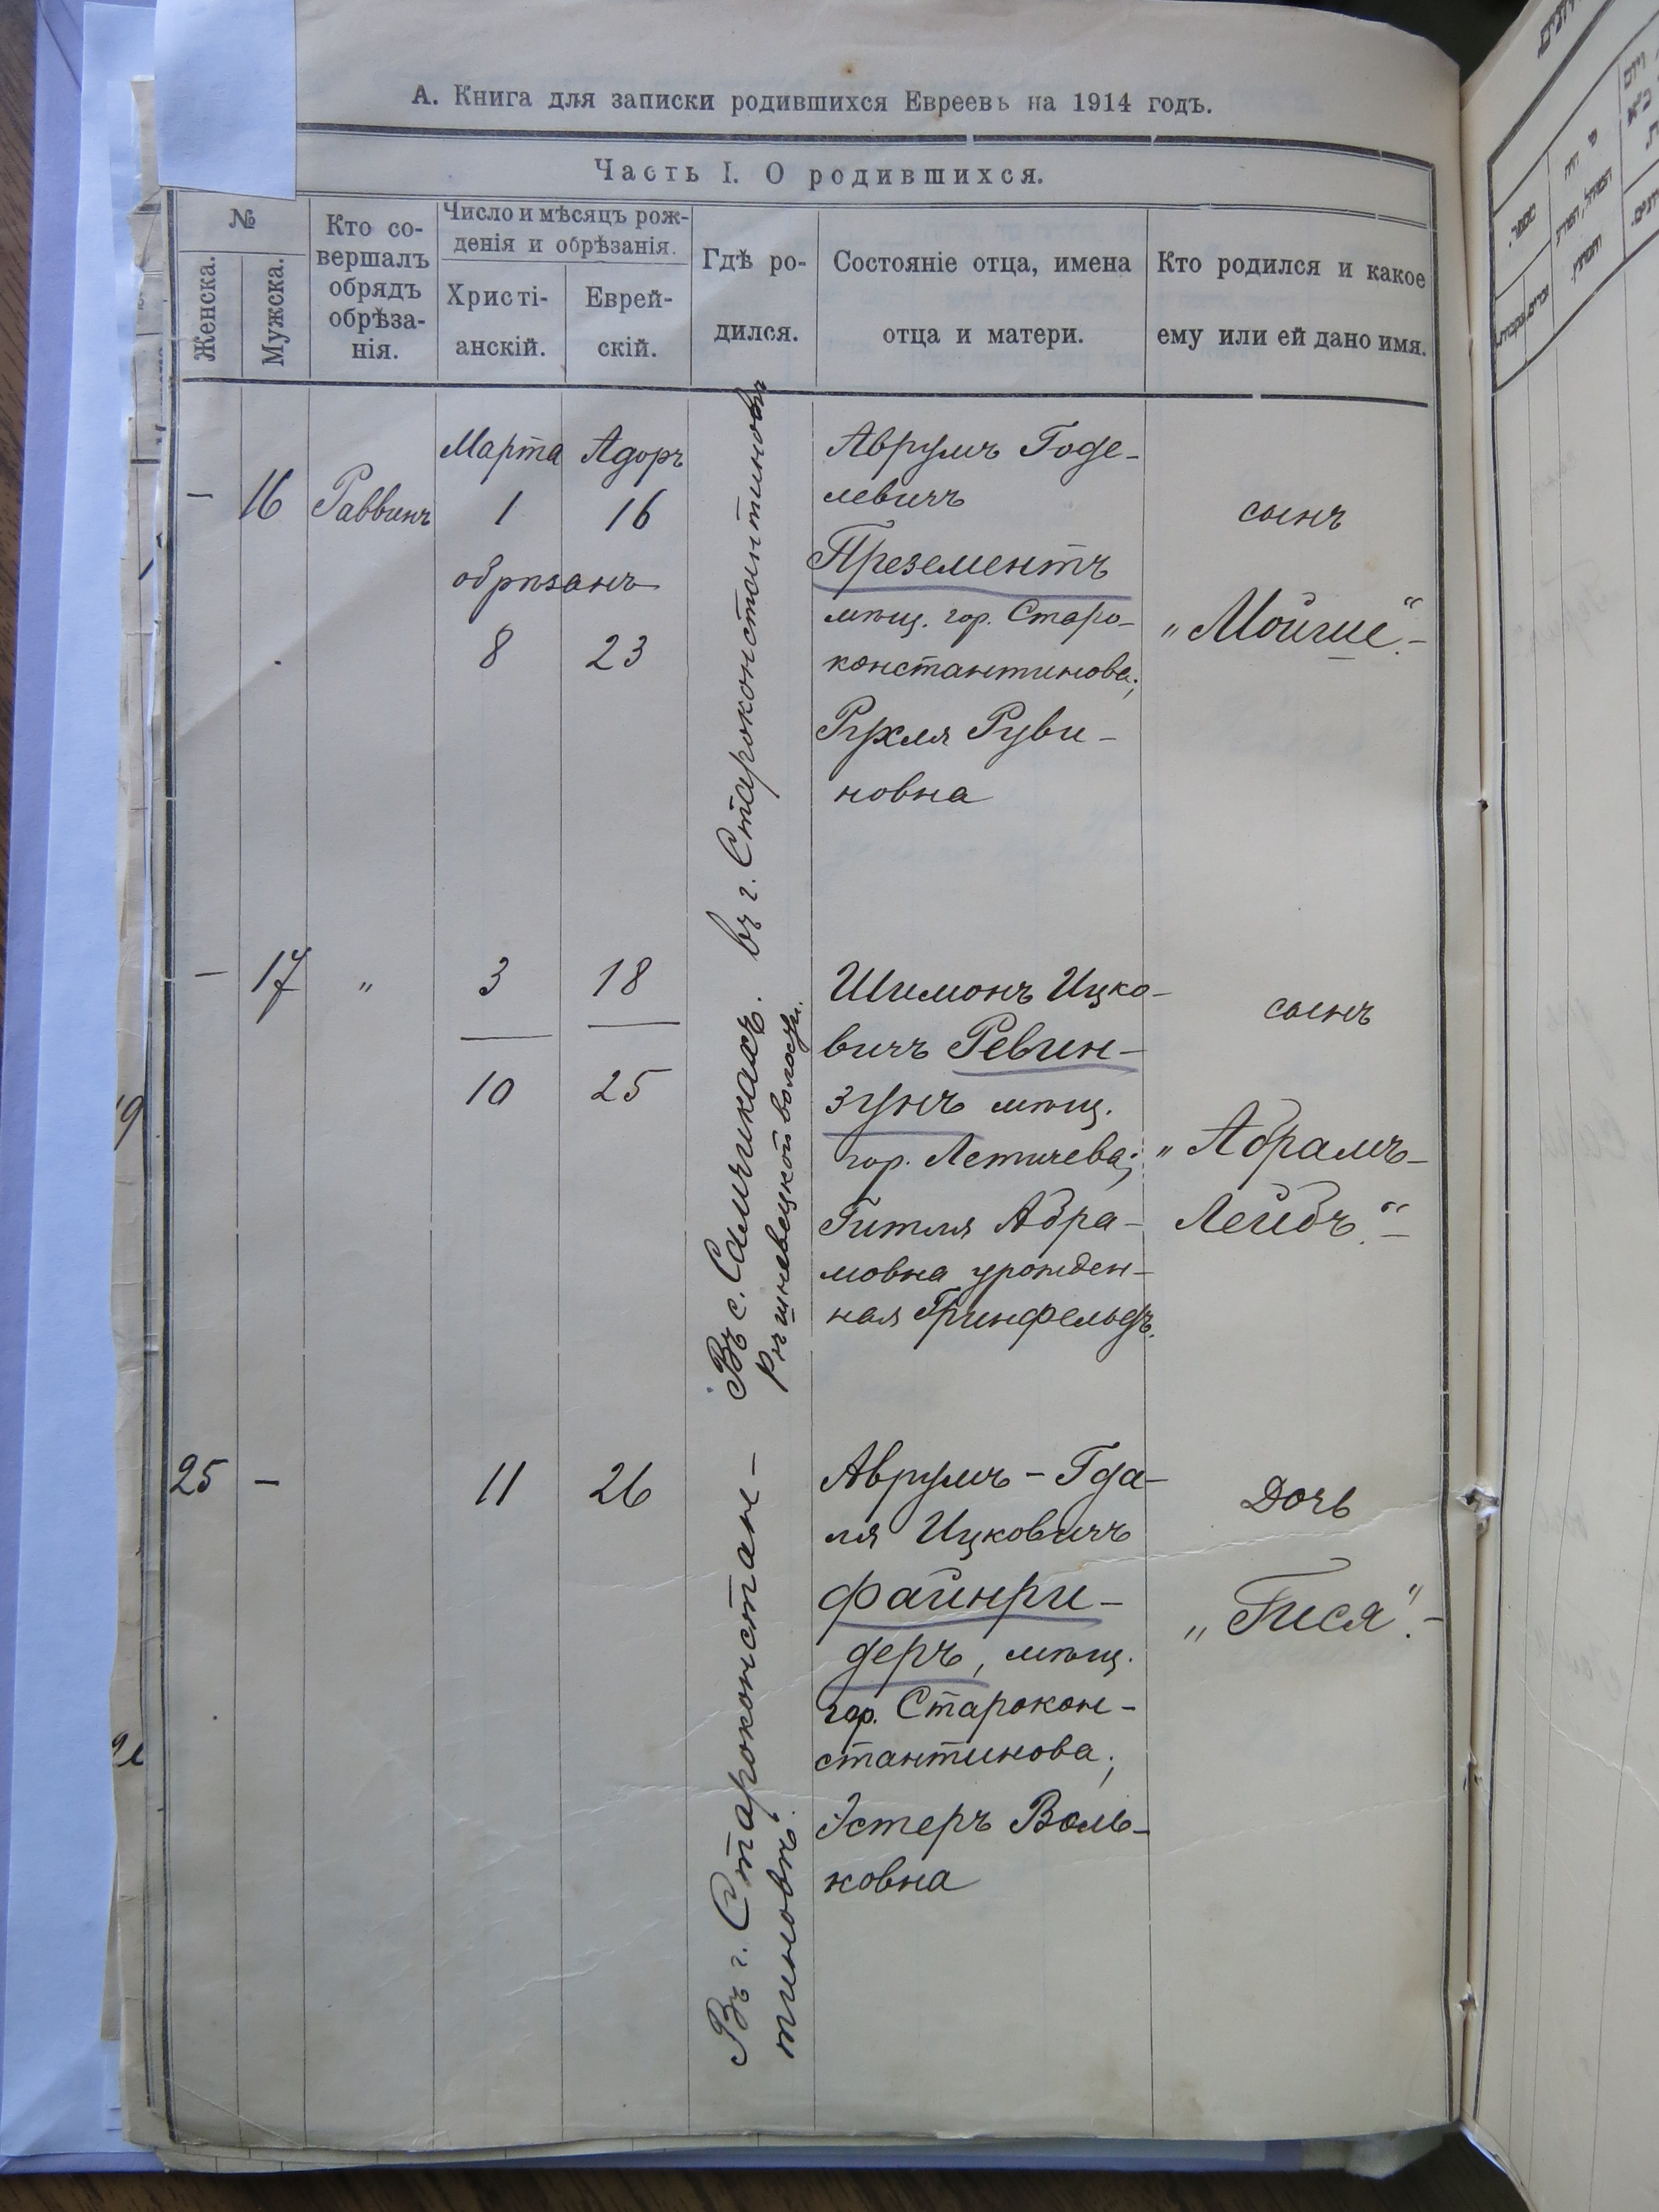 А. Книга для записки родившихся Евреевъ на 1914 годъ.
Часть I. О родившихся.
№
Женска.
Мужска.
Кто со-
вершалъ
обрядъ
обрѣза-
нія.
Число и мѣсяцъ рож-
денія и обрѣзанія.
Христі-
анскій.
Еврей-
скій.
Гдѣ ро-
дился.
Состояніе отца, имена
отца и матери.
Кто родился и какое
ему или ей дано имя.
— 16 Раввинъ
Марта Адоръ
1 16
обрѣзанъ
8 23
въ г. Староконстантиновѣ
Аврумъ Годе-
левичъ
Презементъ
мѣщ. гор. Старо-
константинова;
Рухля Руви-
новна
сынъ
„Мойше“.—
— 17 „
3 18
10 25
Въ с. Самчикахъ.
волости.
Шимонъ Ицко-
вичъ Ревин-
зунъ мѣщ.
гор. Летичева;
Гитля Абра-
мовна урожден-
ная Гринфельдъ.
сынъ
„Абрамъ-
Лейбъ“.—
25 —
11 26
Въ г. Староконстан-
тиновѣ.
Аврумъ-Гда-
ля Ицковичъ
Файнри-
деръ, мѣщ.
гор. Старокон-
стантинова;
Эстеръ Воль-
ковна
Дочь
„Гися“.—